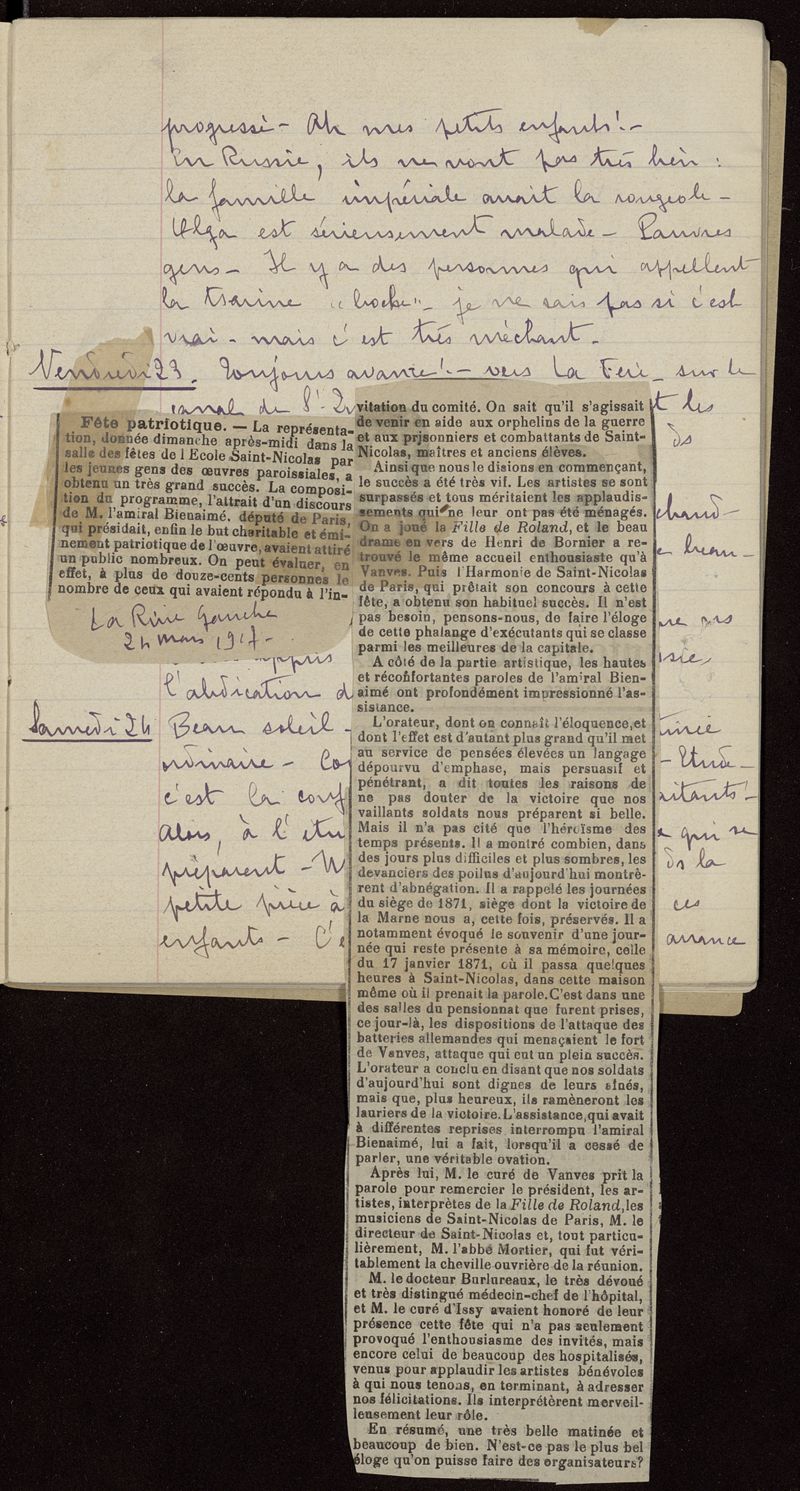 progressé - Ah mes petits enfants! -
En Russie, ils ne vont pas très bien :
la famille impériale avait la rougeole -
Olga est sérieusement malade - Pauvres
gens - Il y a des personnes qui appellent
la tsarine "boche" - je ne sais pas si c'est
vrai - mais c'est très méchant -
Vendredi 23. Toujours avancé! - vers La Fère - sur le
canal de St
t les
ds
chand-
beau-
appris
l'abdication d
Samedi 24 Beau soleil -
ordinaire - Co
- Etude -
c'est la conf
Alors, à l'étu
qui se
préparent -
ds la
petite pièce à
ces
enfants - C'e
avance
Fête patriotique. — La représenta-
tion, donnée dimanche après-midi dans la
salle des fêtes de l'Ecole Saint-Nicolas par
les jeunes gens des œuvres paroissiales, a
obtenu un très grand succès. La composi-
tion du programme, l'attrait d'un discours
de M. l'amiral Bienaimé, député de Paris,
qui présidait, enfin le but charitable et émi-
nement patriotique de l'œuvre, avaient attiré
un public nombreux. On peut évaluer, en
effet, à plus de douze-cents personnes le
nombre de ceux qui avaient répondu à l'in-
La Rive Gauche
24 mars 1917 -
vitation du comité. On sait qu'il s'agissait
de venir en aide aux orphelins de la guerre
et aux prisonniers et combattants de Saint-
Nicolas, maîtres et anciens élèves.
Ainsi que nous le disions en commençant,
le succès a été très vif. Les artistes se sont
surpassés et tous méritaient les applaudis-
sements qui ne leur ont pas été ménagés.
On a joué la Fille de Roland, et le beau
drame en vers de Henri de Bornier a re-
trouvé le même accueil enthousiaste qu'à
Vanves. Puis l'Harmonie de Saint-Nicolas
de Paris, qui prêtait son concours à cette
fête, a obtenu son habituel succès. Il n'est
pas besoin, pensons-nous, de faire l'éloge
de cette phalange d'exécutants qui se classe
parmi les meilleures de la capitale.
A côté de la partie artistique, les hautes
et réconfortantes paroles de l'amiral Bien-
aimé ont profondément impressionné l'as-
sistance.
L'orateur, dont on connaît l'éloquence, et
dont l'effet est d'autant plus grand qu'il met
au service de pensées élevées un langage
dépourvu d'emphase, mais persuasif et
pénétrant, a dit toutes les raisons de
ne pas douter de la victoire que nos
vaillants soldats nous préparent si belle.
Mais il n'a pas cité que l'héroïsme des
temps présents. Il a montré combien, dans
des jours plus difficiles et plus sombres, les
devanciers des poilus d'aujourd'hui montrè-
rent d'abnégation. Il a rappelé les journées
du siège de 1871, siège dont la victoire de
la Marne nous a, cette fois, préservés. Il a
notamment évoqué le souvenir d'une jour-
née qui reste présente à sa mémoire, celle
du 17 janvier 1871, où il passa quelques
heures à Saint-Nicolas, dans cette maison
même où il prenait la parole. C'est dans une
des salles du pensionnat que furent prises,
ce jour-là, les dispositions de l'attaque des
batteries allemandes qui menaçaient le fort
de Vanves, attaque qui eut un plein succès.
L'orateur a conclu en disant que nos soldats
d'aujourd'hui sont dignes de leurs aînés,
mais que, plus heureux, ils ramèneront les
lauriers de la victoire. L'assistance, qui avait
à différentes reprises interrompu l'amiral
Bienaimé, lui a fait, lorsqu'il a cessé de
parler, une véritable ovation.
Après lui, M. le curé de Vanves prit la
parole pour remercier le président, les ar-
tistes, interprètes de la Fille de Roland, les
musiciens de Saint-Nicolas de Paris, M. le
directeur de Saint-Nicolas et, tout particu-
lièrement, M. l'abbé Mortier, qui fut véri-
tablement la cheville ouvrière de la réunion.
M. le docteur Burlureaux, le très dévoué
et très distingué médecin-chef de l'hôpital,
et M. le curé d'Issy avaient honoré de leur
présence cette fête qui n'a pas seulement
provoqué l'enthousiasme des invités, mais
encore celui de beaucoup des hospitalisés,
venus pour applaudir les artistes bénévoles
à qui nous tenons, en terminant, à adresser
nos félicitations. Ils interprétèrent merveil-
leusement leur rôle.
En résumé, une très belle matinée et
beaucoup de bien. N'est-ce pas le plus bel
éloge qu'on puisse faire des organisateurs?